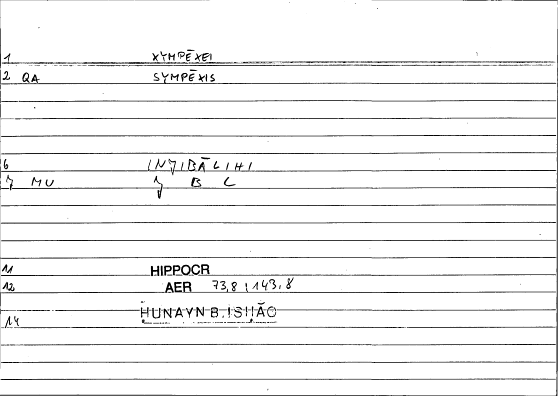 1 XYMPĒXEI
2 QA SYMPĒXIS
6 INǦIBĀLIHI
7 MU Ǧ B L
11 HIPPOCR
12 AER 73,8 ; 143,8
14 ḤUNAYN B. ISḤĀQ